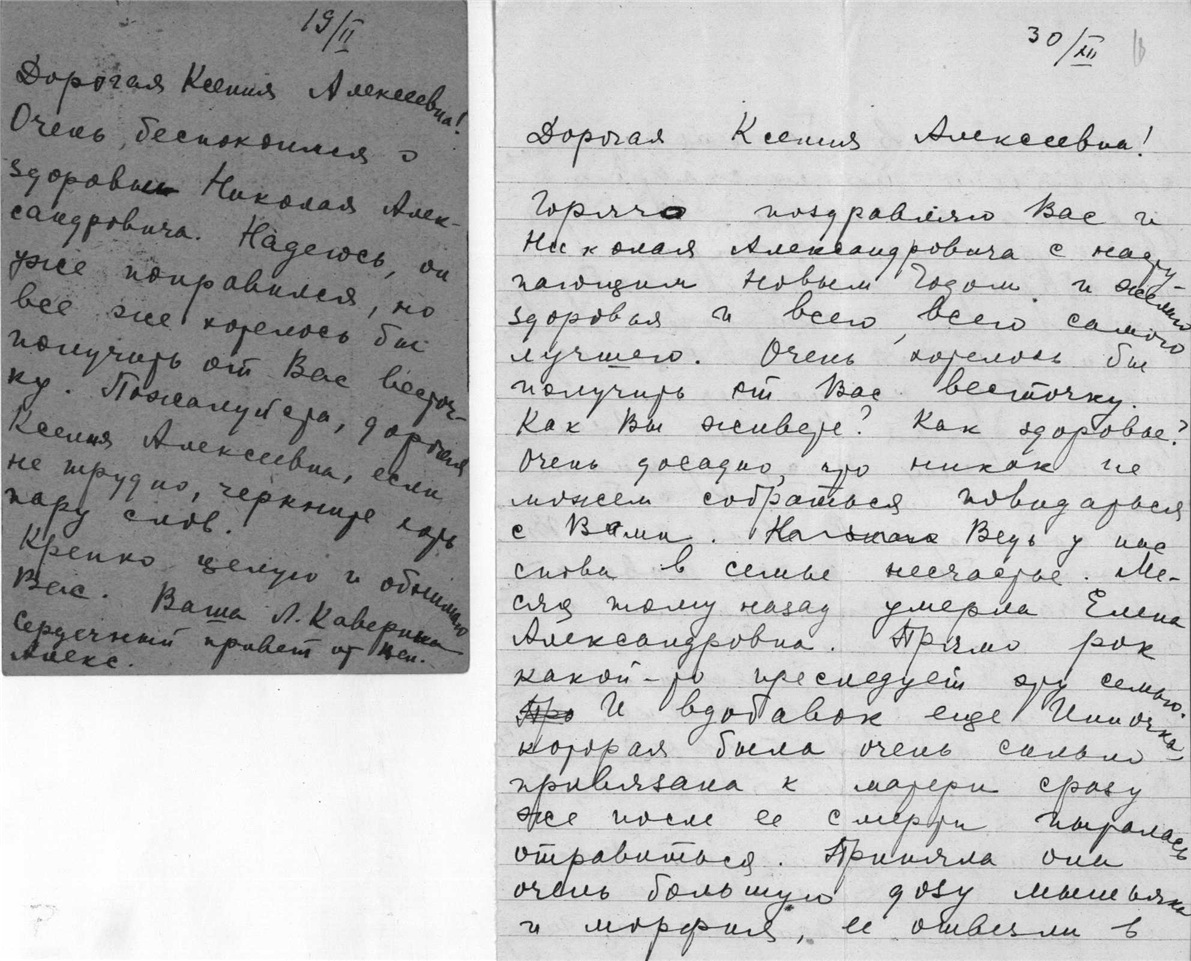 19/II
Дорогая Ксения Алексеевна!
Очень беспокоимся о
здоровьи Николая Алек-
сандровича. Надеюсь, он
уже поправился, но
все же хотелось бы
получить от Вас весточ-
ку. Пожалуйста, дорогая
Ксения Алексеевна, если
не трудно, черкните хоть
пару слов.
Крепко целую и обнимаю
Вас. Ваша Л. Каверина
Сердечный привет от
Алекс.
30/XII
Дорогая Ксения Алексеевна!
Горячо поздравляю Вас и
Николая Александровича с насту-
пающим Новым Годом и желаю
здоровья и всего, всего самого
лучшего. Очень хотелось бы
получить от Вас весточку.
Как Вы живете? Как здоровье?
Очень досадно, что никак не
можем собраться повидаться
с Вами. Ведь у нас
снова в семье несчастье. Ме-
сяц тому назад умерла Елена
Александровна. Прямо рок
какой-то преследует эту семью.
Про И вдобавок еще Инночка-
которая была очень сильно
привязана к матери сразу
же после ее смерти пыталась
отравиться. Приняла она
очень большую дозу мышьяка
и морфия, ее отвезли в